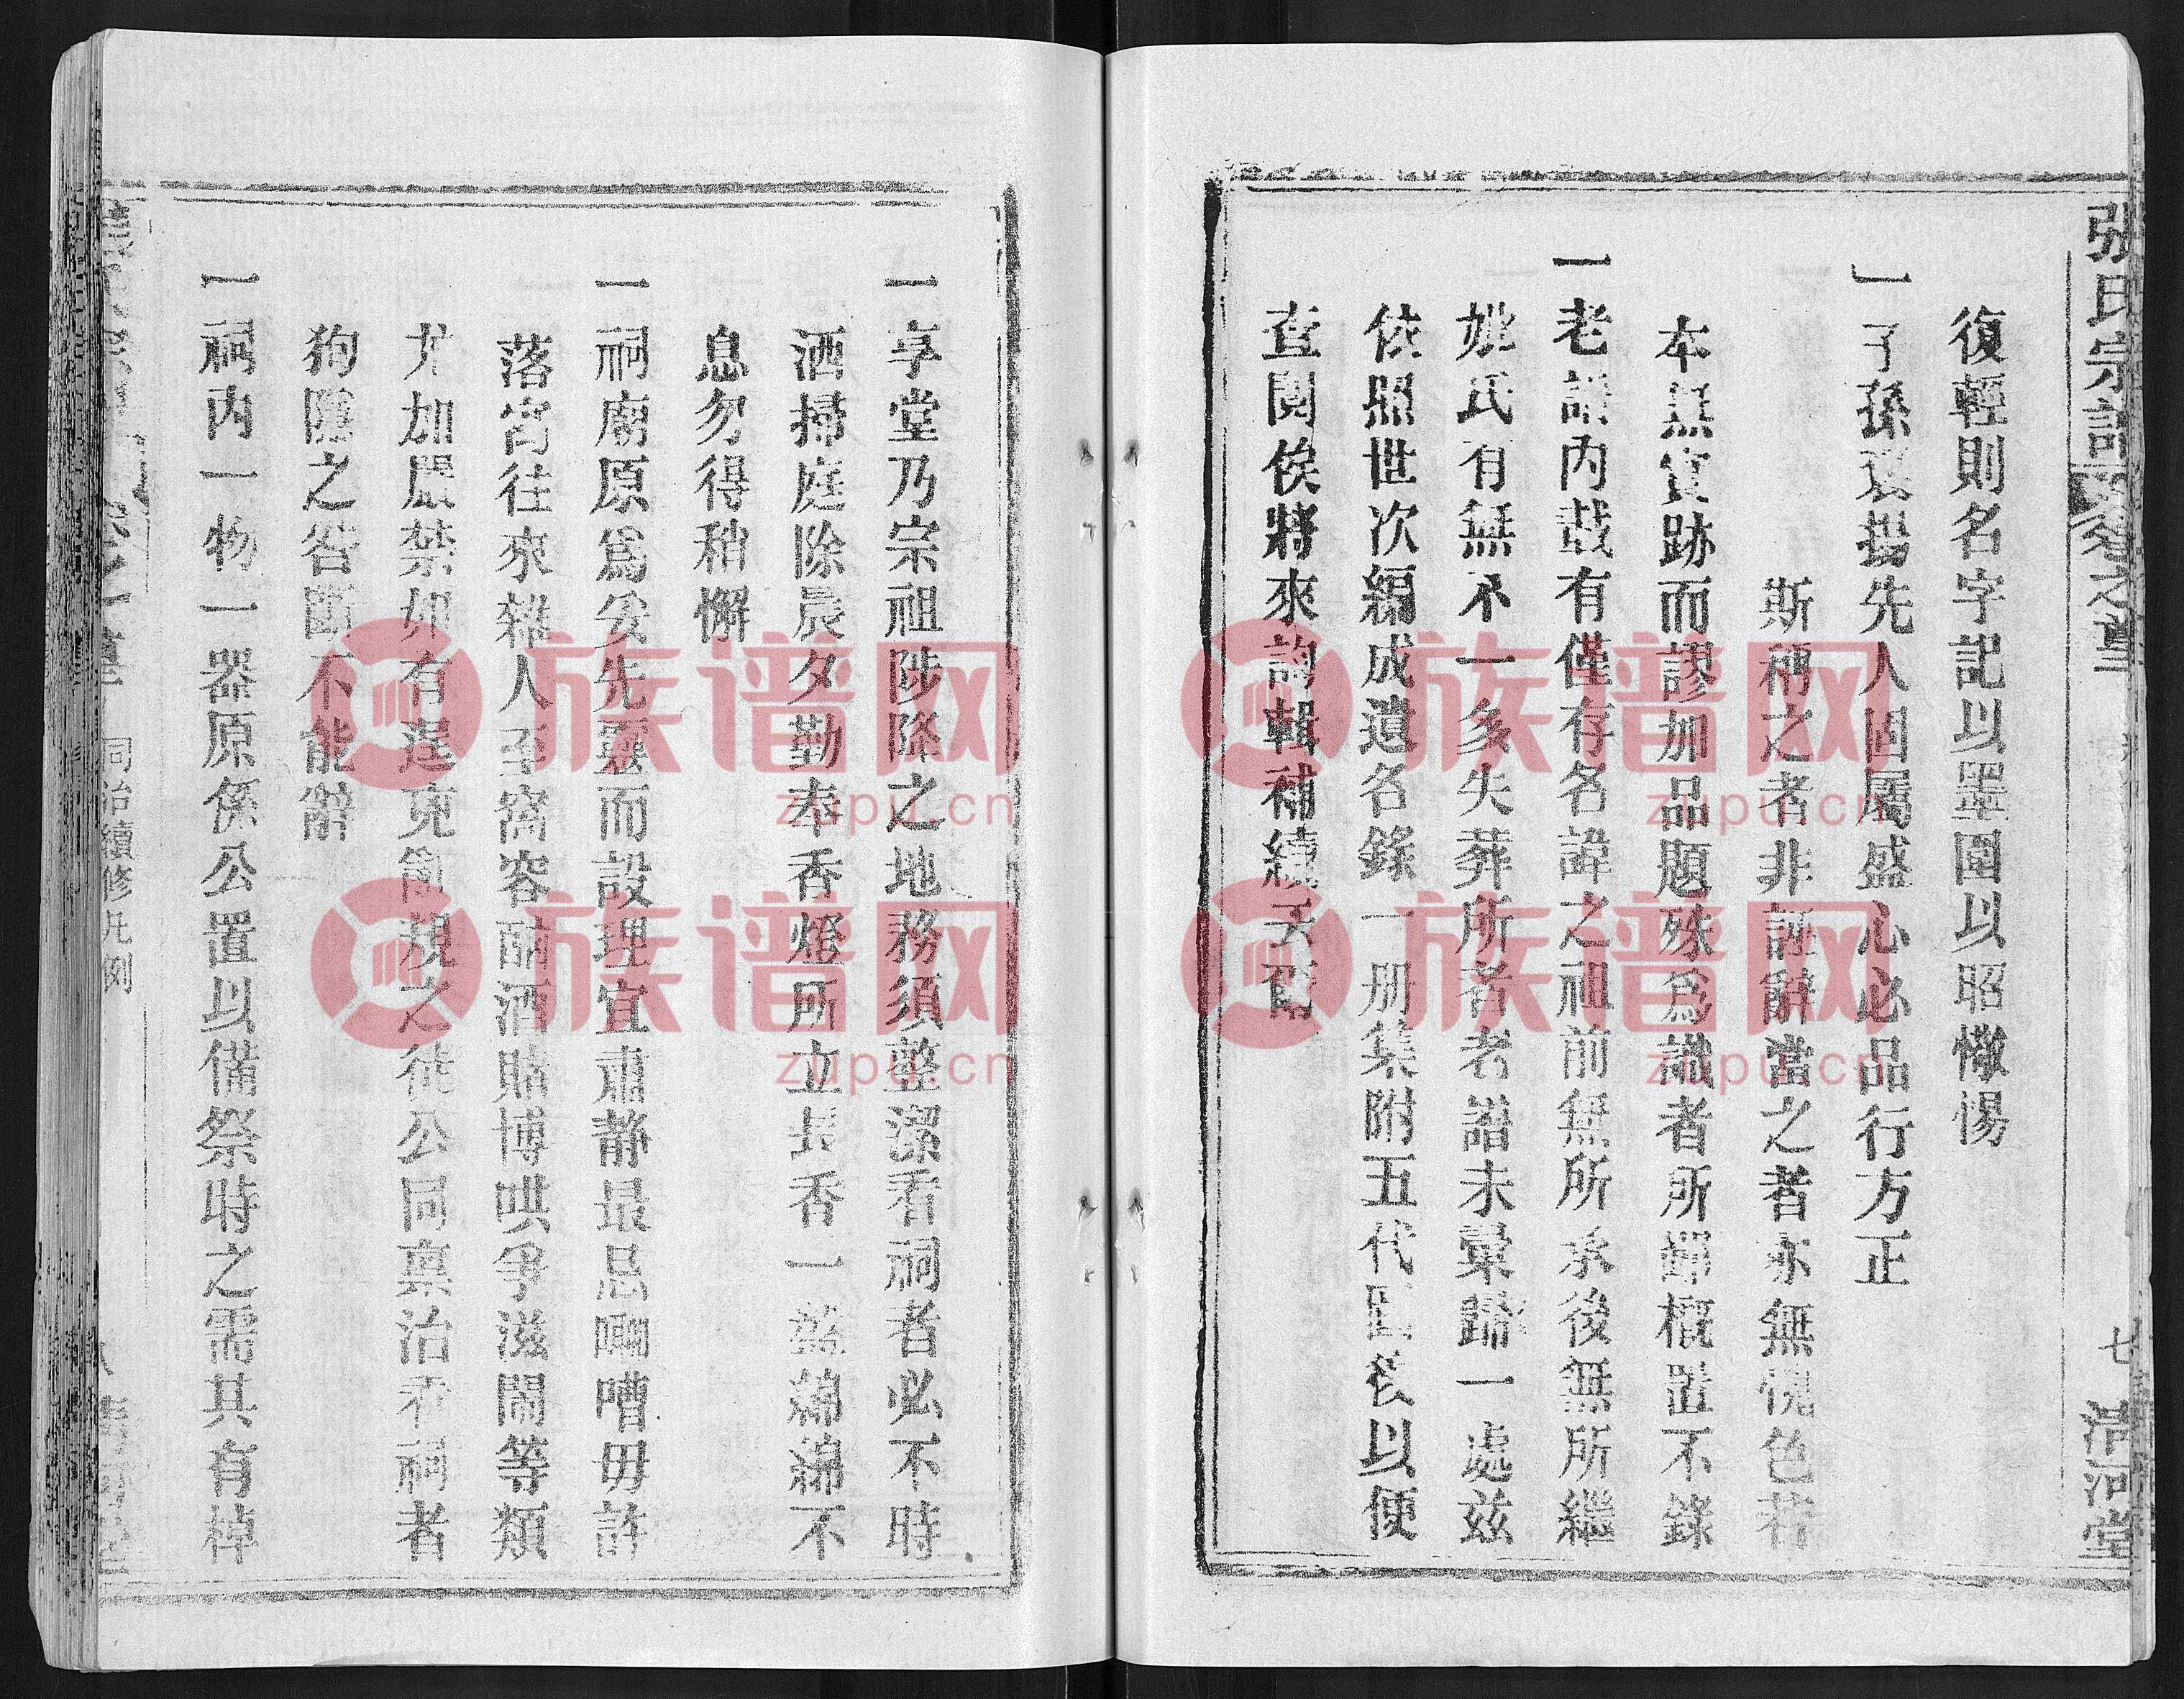 張氏宗譜 卷之首 七 清河堂
復輕則名字記以墨圈以昭懲惕
一子孫褒揚先人固屬盛心必品行方正
斯稱之者非誣辭當之者亦無愧色若
本無實跡而謬加品題殊為識者所鄙概置不錄
一老譜內載有僅存名諱之祖前無所承後無所繼
妣氏有無不一多失葬所者老譜未彙歸一處茲
依照世次編成遺名錄一册集附五代圖後以便
查閱俟將來詢輯補續
一享堂乃宗祖陟降之地務須整潔看祠者必不時
洒掃庭除晨夕勤奉香燈所立長香一盤綿綿不
息勿得稍懈
一祠廟原爲妥先靈而設理宜肅静最忌嘈毋許
落窩往來雜人至窩容酗酒賭博哄爭滋鬧等類
尤加嚴禁如有逞兇亂規之徒公同禀治看祠者
狥隱之咎斷不能辭
一祠內一物一器原係公置以備祭時之需其有棹
同治續修凡例
族谱网
zupu.cn
族谱网
zupu.cn
族谱网
zupu.cn
族谱网
zupu.cn